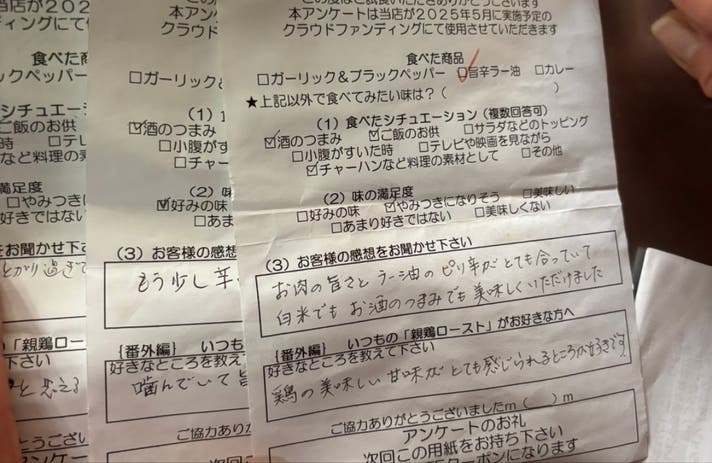 本アンケートは当店が2025年5月に実施予定の
クラウドファンディングにて使用させていただきます
食べた商品
□ガーリック&ブラックペッパー ☑旨辛ラー油 □カレー
★上記以外で食べてみたい味は?( )
(1) 食べたシチュエーション(複数回答可)
☑酒のつまみ ☑ご飯のお供 □サラダなどのトッピング
□小腹がすいた時 □テレビや映画を見ながら
☑チャーハンなど料理の素材として □その他
(2) 味の満足度
□好みの味 ☑やみつきになりそう □美味しい
□あまり好きではない □美味しくない
(3) お客様の感想をお聞かせ下さい
お肉の旨さとラー油のピリ辛がとても合っていて
白米でもお酒のつまみでも美味しくいただけました
{番外編} いつもの「親鶏ロースト」がお好きな方へ
好きなところを教えて下さい
鶏の美味しい甘味がとても感じられるところが好きです
ご協力ありがとうございましたm( )m
アンケートのお礼
次回この用紙をお持ち下さい
クーポンになります
本アン
クラウド
□ガーリッ
★上記
(1)
☑酒のつまみ
□小腹が
□チャー
(2)
☑好みの味
□あ
(3) お客様の感想
もう少し辛
{番外編} いつも
好きなところを教えて
噛んでいて旨
ご協力ありが
ア
次回
当店が20
ィングにて
食べた商
ブラックペッ
食べてみたい
シチュエーシ
☑ご飯のお供
時 □テレ
など料理の
の満足度
好きではない
をお聞かせ下さ
の「親鶏ロース
下さい
と思える
とうござい
ンケート
の用紙